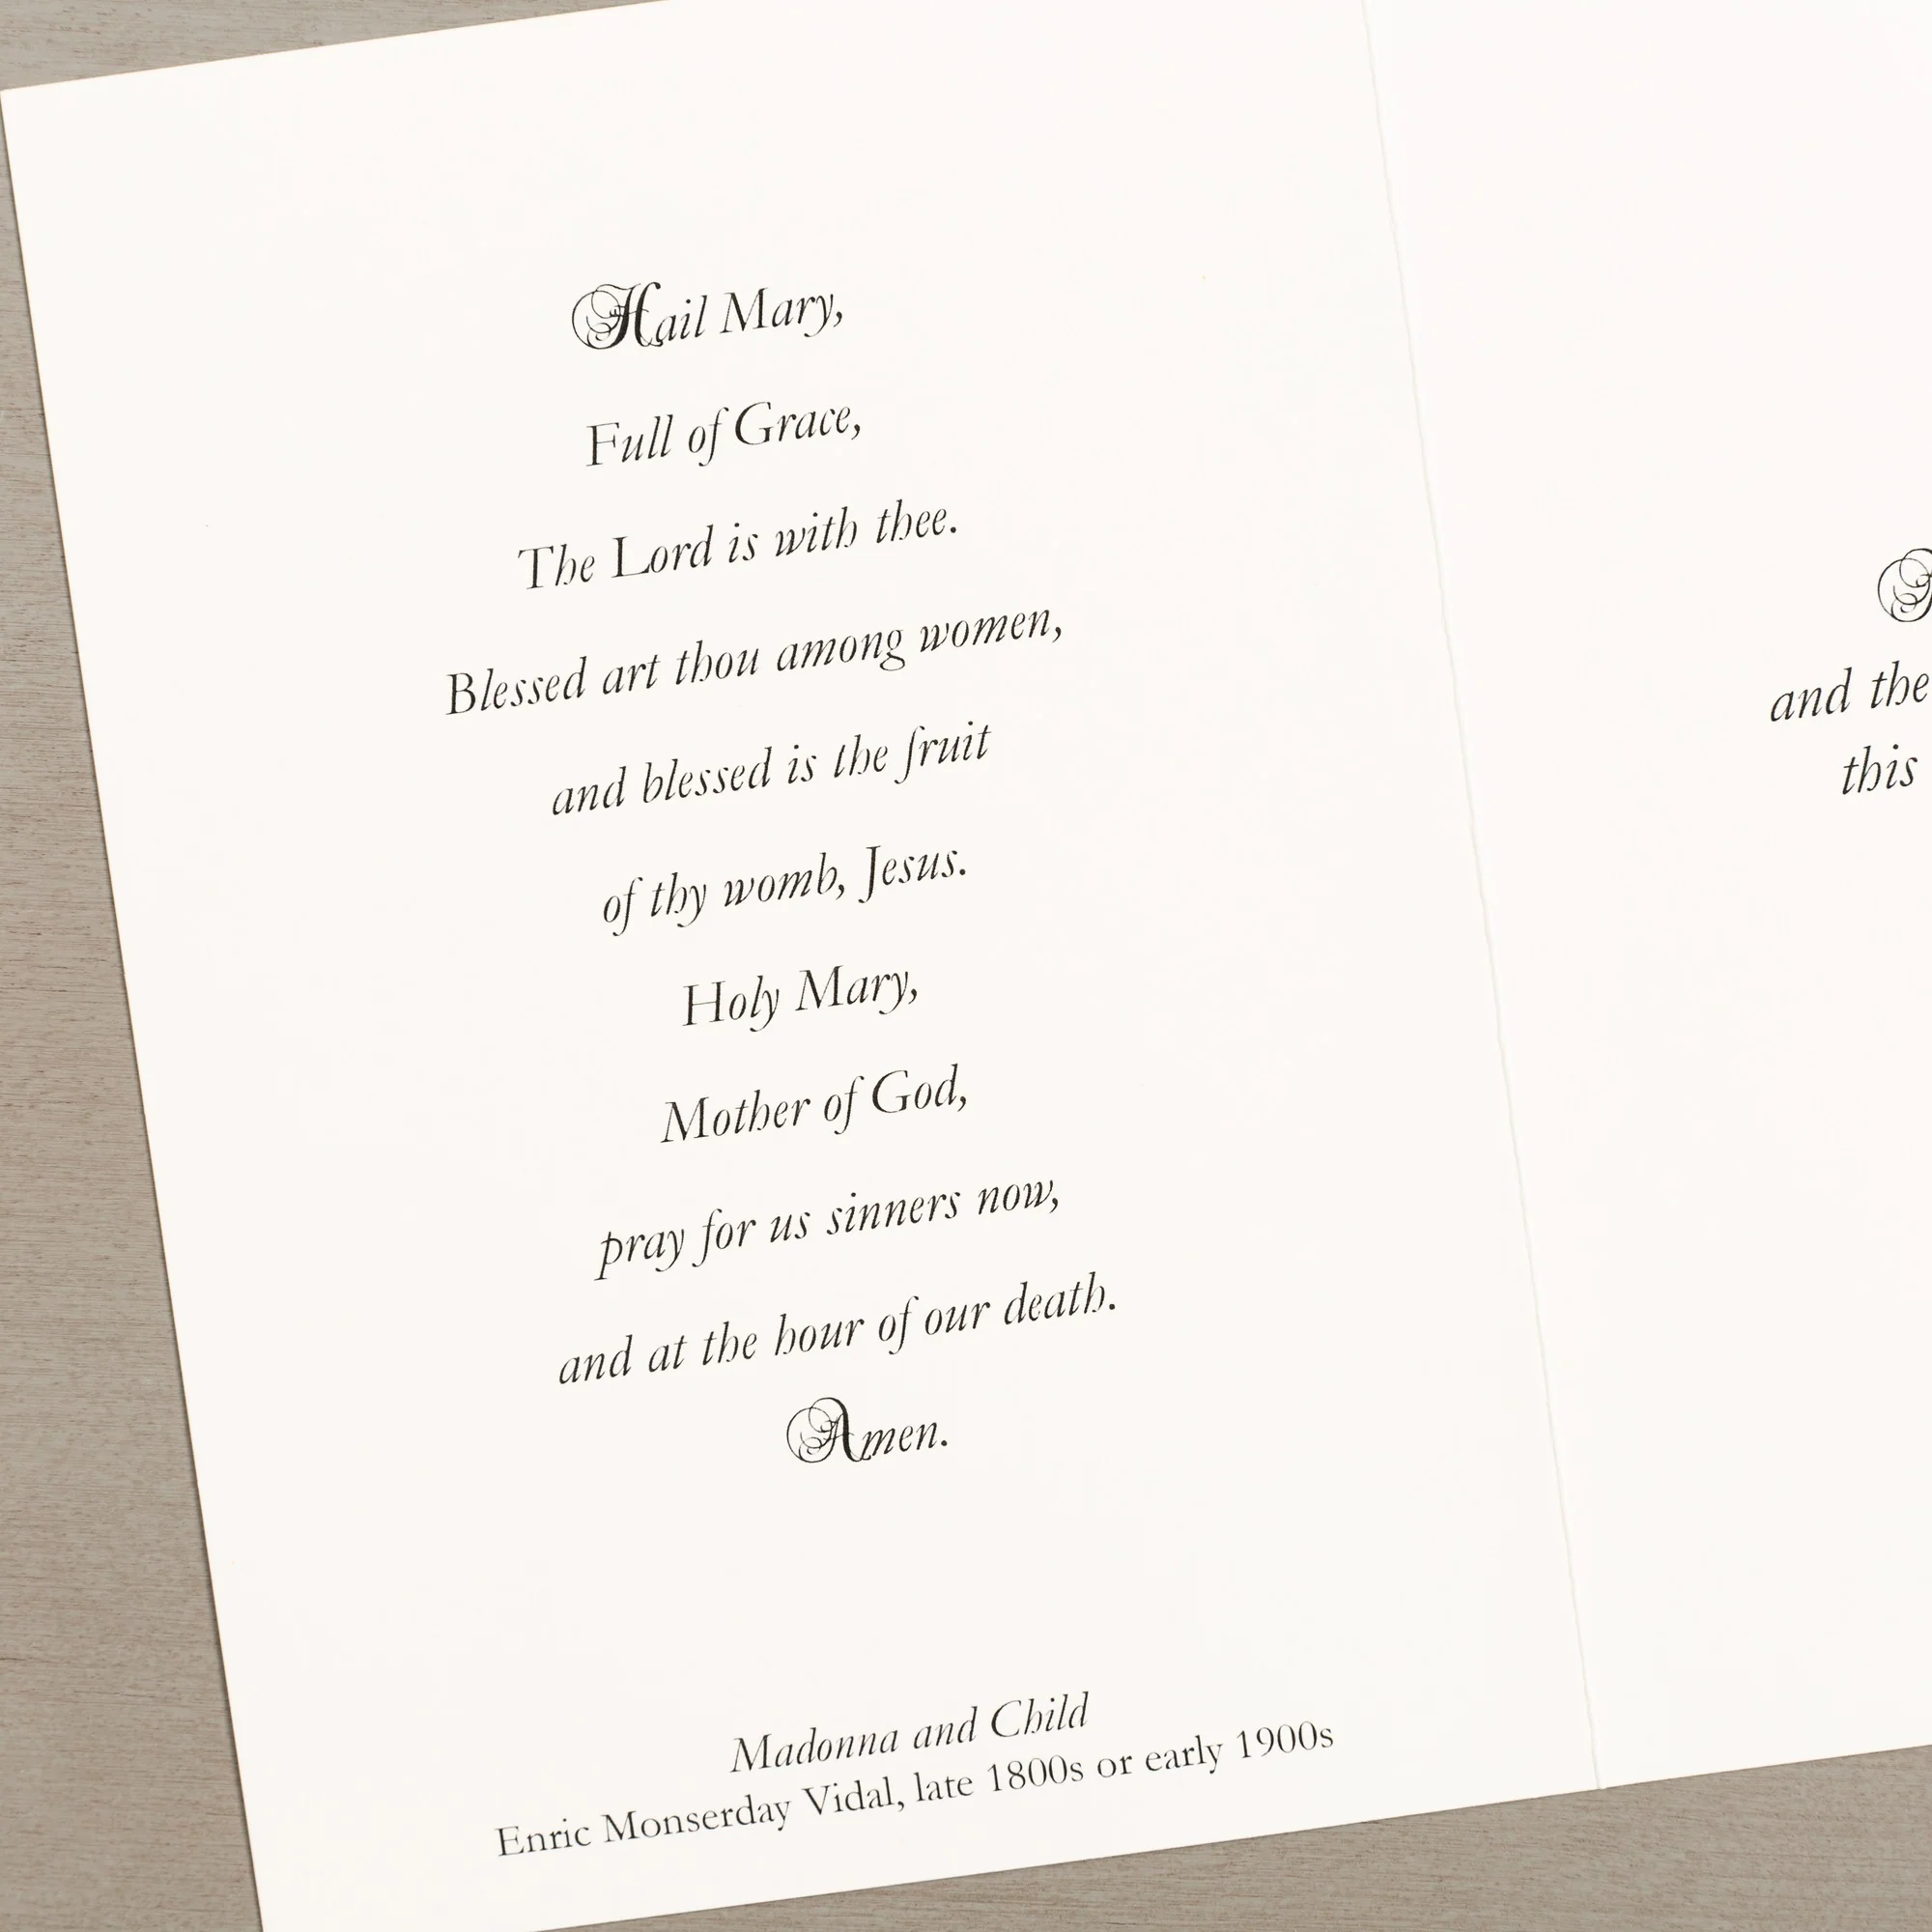 Hail Mary,
Full of Grace,
The Lord is with thee.
Blessed art thou among women,
and blessed is the fruit
of thy womb, Jesus.
Holy Mary,
Mother of God,
pray for us sinners now,
and at the hour of our death.
Amen.
Madonna and Child
Enric Monserday Vidal, late 1800s or early 1900s
and the
this